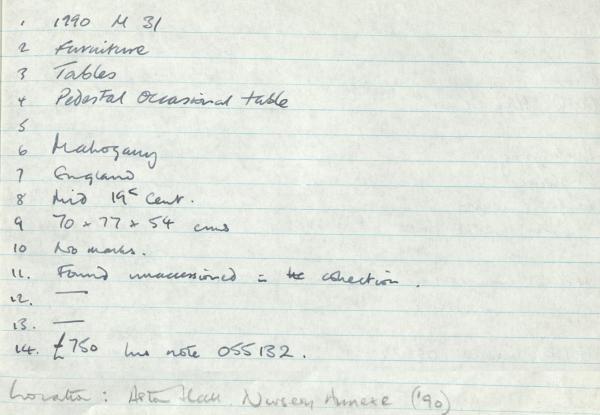 1 1990 M 31
2 Furniture
3 Tables
4 Pedestal Occasional table
5
6 Mahogany
7 England
8 Mid 19c Cent.
9 70 x 77 x 54 cms
10 No marks.
11. Found unaccessioned in the collection.
12. —
13. —
14. £750 Ins note 055132.
Location: Aston Hall Nursery Annexe ('90)